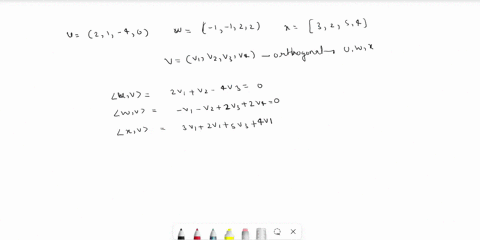 u = (2, 1, -4, 0) w = (-1, -1, 2, 2) x = [3, 2, 5, 4]
V = (v1, v2, v3, v4) — orthogonal → u, w, x
⟨u, v⟩ = 2v1 + v2 - 4v3 = 0
⟨w, v⟩ = -v1 - v2 + 2v3 + 2v4 = 0
⟨x, v⟩ = 3v1 + 2v1 + 5v3 + 4v1